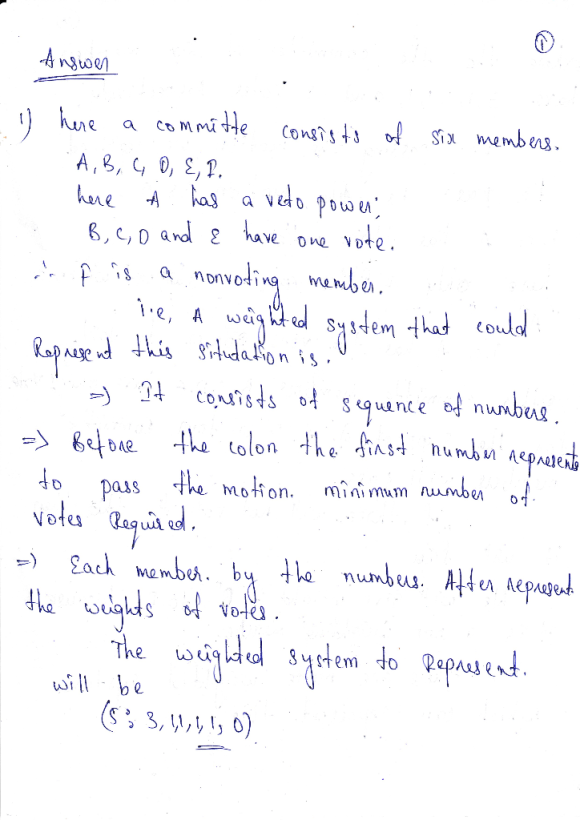 ①
Answer
1) here a committe consists of six members.
A, B, C, D, E, F.
here A has a veto power;
B, C, D and E have one vote.
∴ F is a nonvoting member.
i.e, A weighted system that could
Represent this situdation is.
=) It consists of sequence of numbers.
=> Before the colon the first number represents
to pass the motion. minimum number of
votes Required.
=) Each member. by the numbers. After represent
the weights of votes.
The weighted system to Represent.
will be
(5; 3, 1, 1, 1, 1, 0)